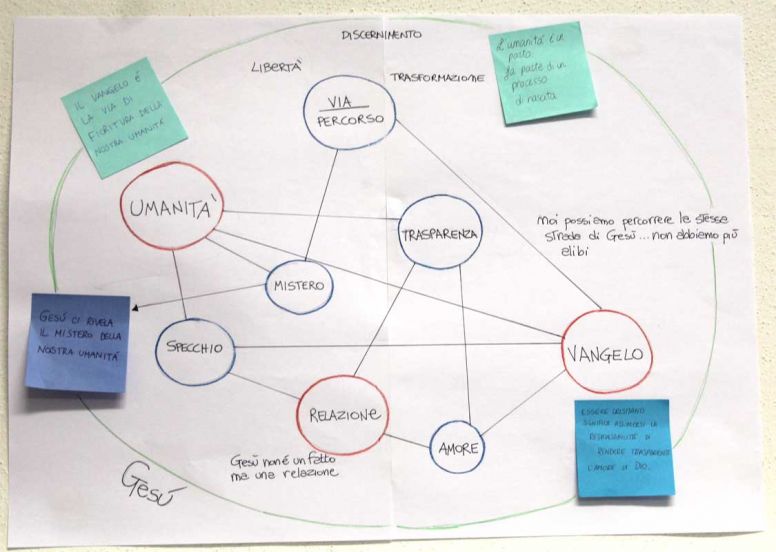 DISCERNIMENTO
LIBERTÀ
TRASFORMAZIONE
VIA
PERCORSO
IL VANGELO É
LA VIA DI
FIORITURA DELLA
NOSTRA UMANITÀ
L'umanità é un
parto.
fa parte di un
processo
di nascita
UMANITÀ
TRASPARENZA
noi possiamo percorrere le stesse
strade di Gesù... non abbiamo più
alibi
MISTERO
GESÙ CI RIVELA
IL MISTERO DELLA
NOSTRA UMANITÀ
SPECCHIO
VANGELO
RELAZIONE
AMORE
Gesù non é un fatto
ma una relazione
Gesù
ESSERE CRISTIANO
SIGNIFICA ASSUMERSI LA
RESPONSABILITÀ DI
RENDERE TRASPARENTE
L'AMORE DI DIO.